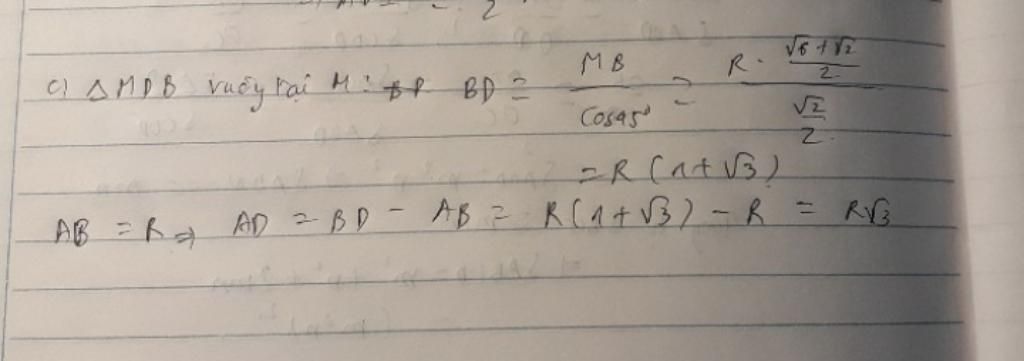 c) △MDB vuông tại M: BD = MB / cos45° = R · (√6 + √2)/2 / (√2/2)
= R(1 + √3)
AB = R ⇒ AD = BD - AB = R(1 + √3) - R = R√3